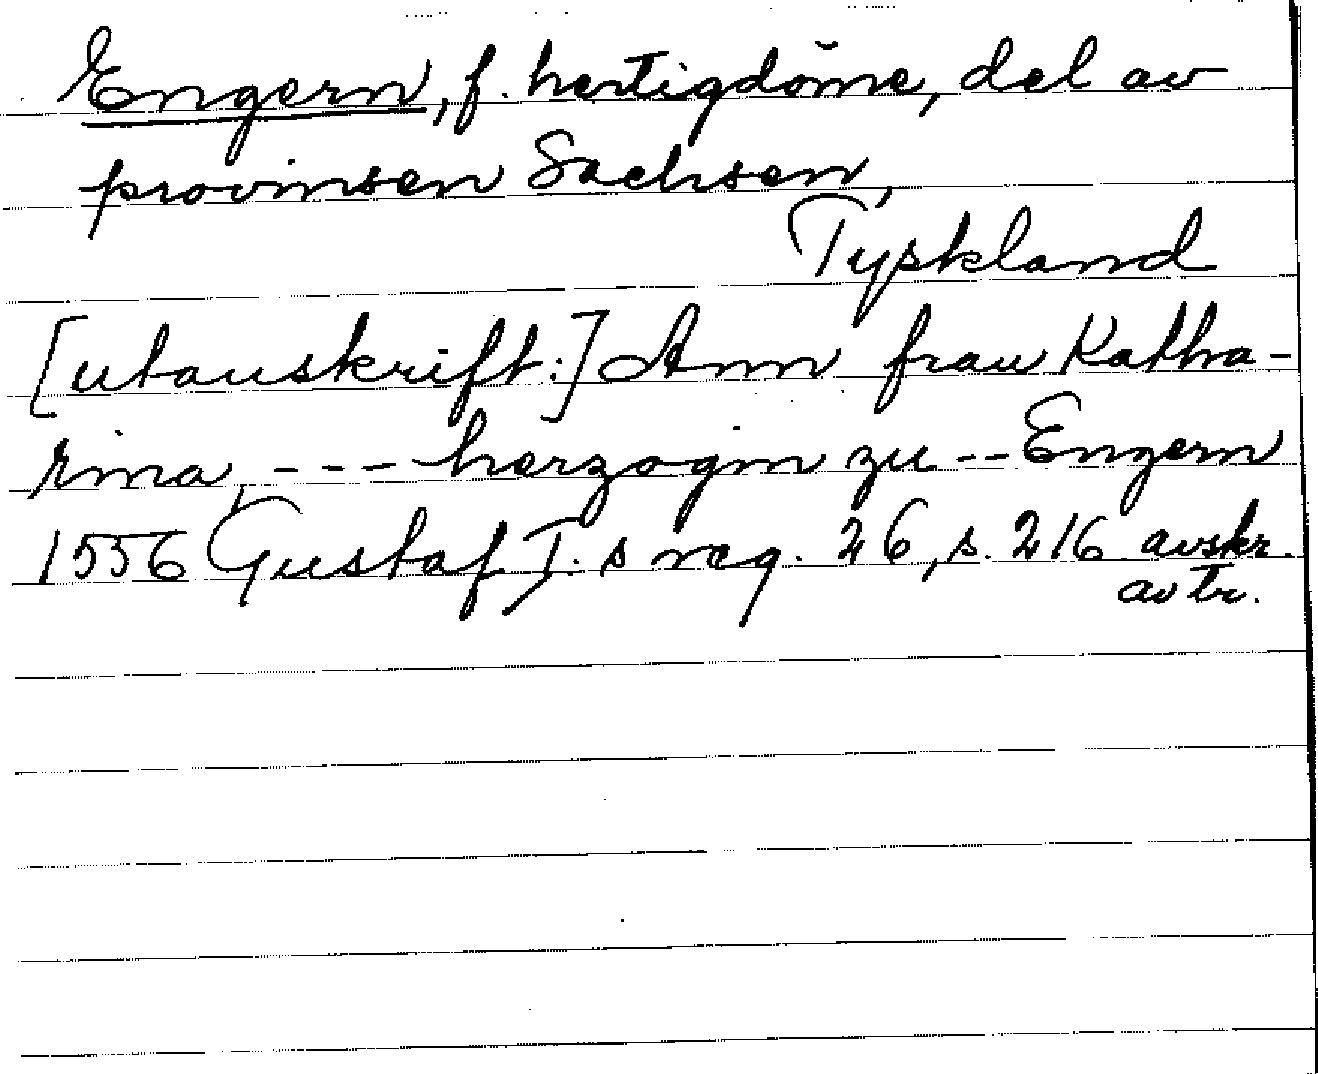 Engern, f. hertigdöme, del av
provinsen Sachsen,
Tyskland
[utanskrift:] Ann frau Katha-
rina, --- herzogin zu -- Engern
1556 Gustaf I:s reg. 26, s. 216 avskr.
av tr.